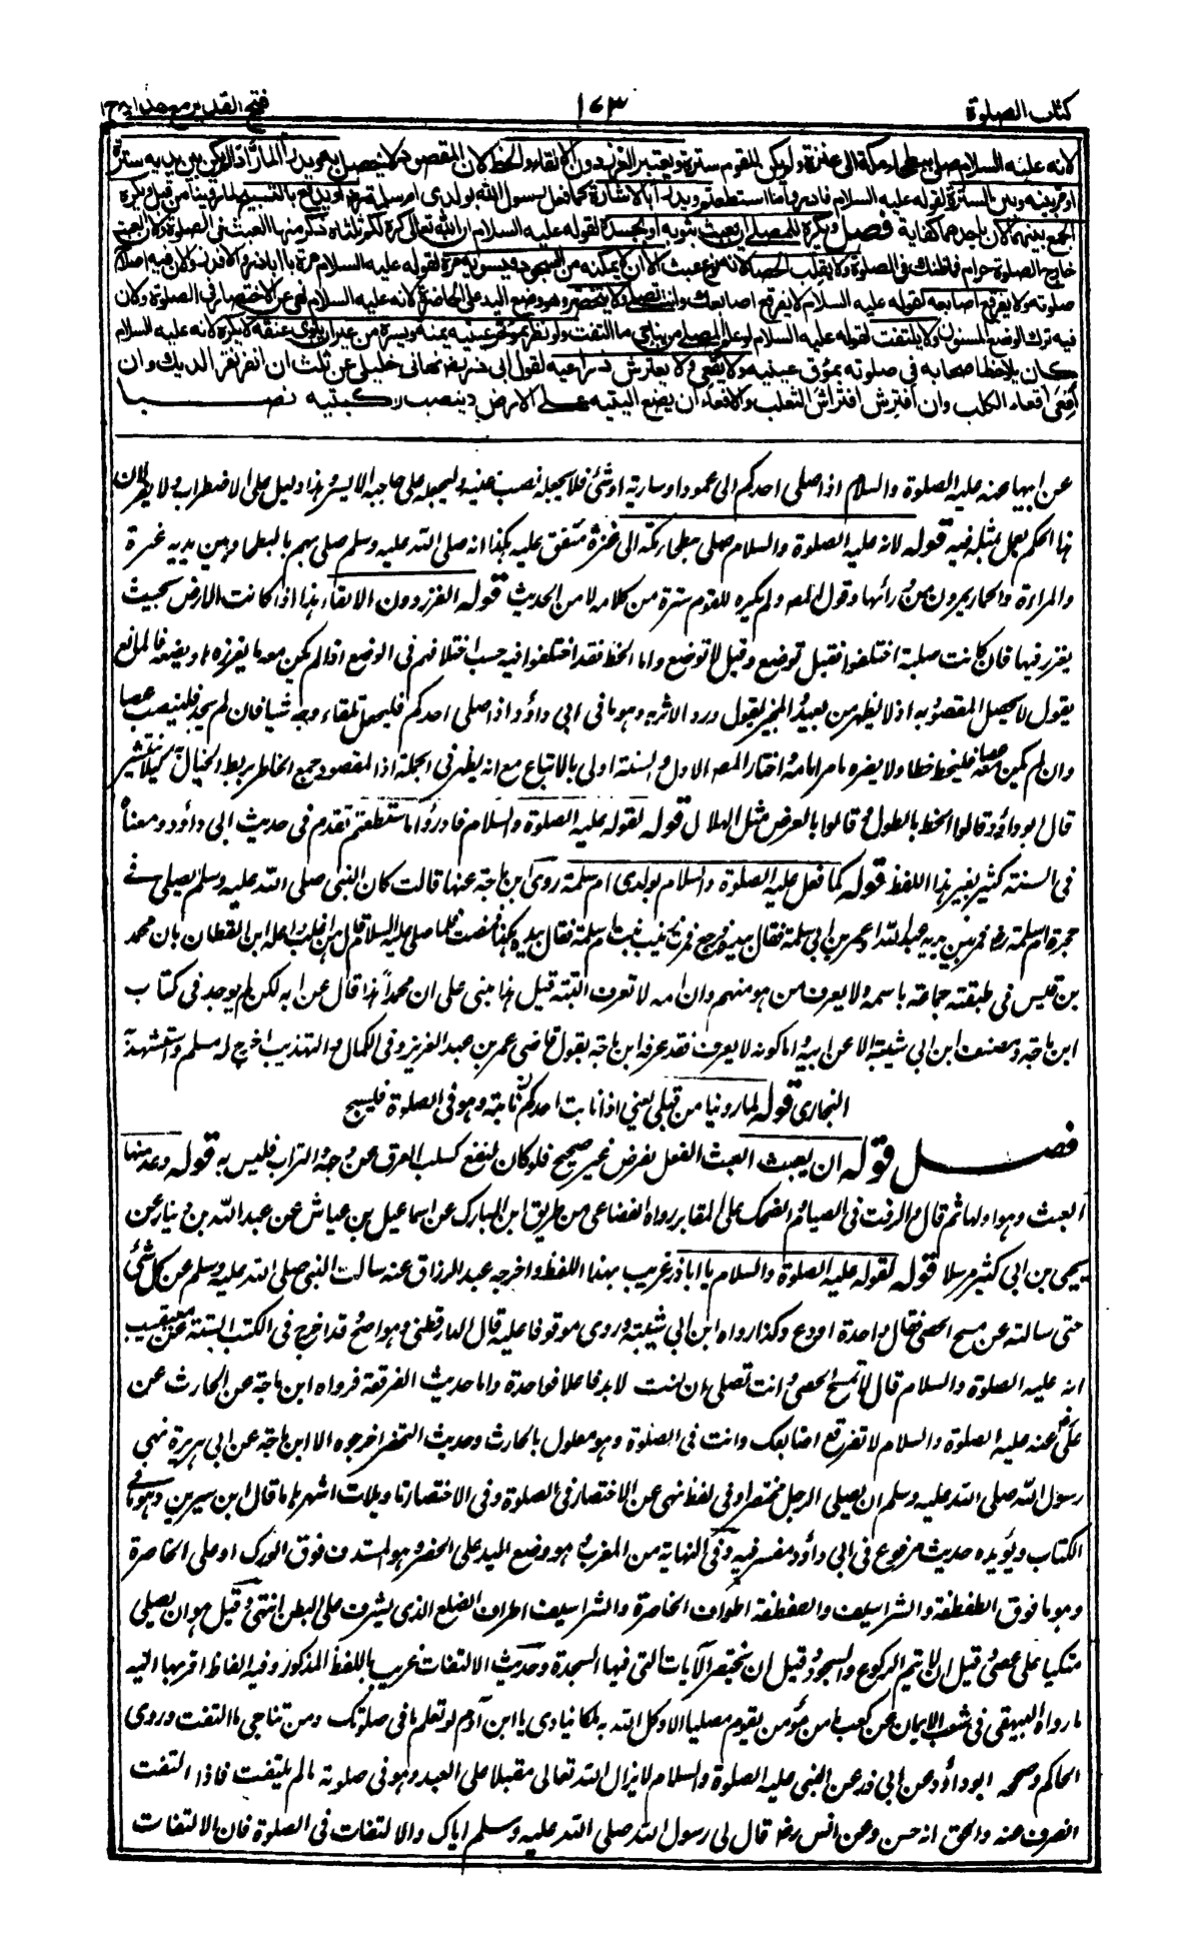 كتاب الصلوة ١٦٣ فتح القدير مع هدايه ج ١
لانه عليه السلام صلى ببطحاء مكة الى عنزة ولم يكن للقوم سترة ويعتبر الغرز دون الالقاء والخط لان المقصود لا يحصل به ويدرأ المار اذا لم يكن بين يديه سترة
او مر بينه وبين السترة لقوله عليه السلام فادرؤا ما استطعتم ويدرأ بالاشارة كما فعل رسول الله بولدى ام سلمة رض او يدفع بالتسبيح لما روينا من قبل ويكره
الجمع بينهما لان باحدهما كفاية فصل ويكره للمصلى ان يعبث بثوبه او بجسده لقوله عليه السلام ان الله تعالى كره لكم ثلثا وذكر منها العبث فى الصلوة ولان العبث
خارج الصلوة حرام فما ظنك فى الصلوة ولا يقلب الحصا لانه نوع عبث الا ان لا يمكنه من السجود فيسويه مرة لقوله عليه السلام مرة يا اباذر والا فذر ولان فيه اصلاح
صلوته ولا يفرقع اصابعه لقوله عليه السلام لا تفرقع اصابعك وانت تصلى ولا يتخصر وهو وضع اليد على الخاصرة لانه عليه السلام نهى عن الاختصار فى الصلوة ولان
فيه ترك الوضع المسنون ولا يلتفت لقوله عليه السلام لو علم المصلى من يناجى ما التفت ولو نظر بمؤخر عينيه يمنة ويسرة من غير ان يلوى عنقه لا يكره لانه عليه السلام
كان يلاحظ اصحابه فى صلوته بمؤق عينيه ولا يقعى ولا يفترش ذراعيه لقول ابى ذر رض نهانى خليلى عن ثلث ان انقر نقر الديك وان
اقعى اقعاء الكلب وان افترش افتراش الثعلب والاقعاء ان يضع اليتيه على الارض وينصب ركبتيه نصبا
عن ابيها عنه عليه الصلوة والسلام اذا صلى احدكم الى عمود او سارية او شئ فلا يجعله نصب عينيه وليجعله على حاجبه الايسر وهذا دليل على الاضطراب ولا يظهر الان
بهذا الحكم يعمل بمثله فيه قوله لانه عليه الصلوة والسلام صلى ببطحاء مكة الى عنزة متفق عليه بكذا انه صلى الله عليه وسلم صلى بهم بالبطحاء وبين يديه عنزة
والمراءة والحمار يمرون من ورائها وقول المص ولم يكن للقوم سترة من كلامه لا من الحديث قوله الغرز دون الالقاء هذا اذا كانت الارض بحيث
يغرز فيها فان كانت صلبة اختلفوا فقيل توضع وقيل لا توضع واما الخط فقد اختلفوا فيه حسب اختلافهم فى الوضع اذا لم يكن معه ما يغرزه او يضعه فالمانع
يقول لا يحصل المقصود به اذ لا يظهر من بعيد والمجيز يقول ورد الاثر به وهو ما فى ابى داؤد اذا صلى احدكم فليجعل تلقاء وجهه شيا فان لم يجد فلينصب عصا
وان لم يكن معه عصا فليخط خطا ولا يضره ما مر امامه واختار المص الاول والسنة اولى بالاتباع مع انه يظهر فى الجملة اذ المقصود جمع الخاطر بربط الخيال به كيلا ينتشر
قال ابو داؤد قالوا الخط بالطول وقالوا بالعرض مثل الهلال قوله لقوله عليه الصلوة والسلام فادرؤا ما ستطعتم تقدم فى حديث ابى داؤد ومعناه
فى السنة كثير بغير هذا اللفظ قوله كما فعل عليه الصلوة والسلام بولدى ام سلمة روى ابن ماجة عنها قالت كان النبى صلى الله عليه وسلم يصلى فى
حجرة ام سلمة رض فمر بين يديه عبد الله او عمر بن ابى سلمة فقال بيده فرجع فمرت زينب بنت ام سلمة فقال بيده هكذا فمضت فلما صلى عليه السلام قال هن اغلب اعله ابن القطان بان محمد
بن قيس فى طبقته جماعة باسمه ولا يعرف من هو منهم وان امه لا تعرف البتة قيل هذا مبنى على ان محمدا هذا قال عن امه لكن لم يوجد فى كتاب
ابن ماجة ومصنف ابن ابى شيبة الا عن ابيه واما كونه لا يعرف فقد عرفه ابن ماجه بقوله قاضى عمر بن عبد العزيز وفى الكمال والتهذيب اخرج له مسلم واستشهد به
البخارى قوله لما روينا من قبل يعنى اذا نابت احدكم نائبة وهو فى الصلوة فليسبح
فصل قوله ان يعبث العبث الفعل لغرض غير صحيح فلو كان لنفع كسلت العرق عن وجهه والتراب فليس به قوله وعد منها
العبث وهو اولها ثم قال والرفث فى الصيام والضحك على المقابر رواه القضاعى من طريق ابن المبارك عن اسماعيل بن عياش عن عبد الله بن دينار عن
يحيى بن ابى كثير مرسلا قوله لقوله عليه الصلوة والسلام يا اباذر غريب بهذا اللفظ واخرجه عبد الرزاق عنه سالت النبى صلى الله عليه وسلم عن كل شئ
حتى سالته عن مسح الحصى فقال واحدة او دع وكذا رواه ابن ابى شيبة وروى موقوفا عليه قال الدارقطنى وهو اصح وقد اخرج فى الكتب الستة عن معيقيب
انه عليه الصلوة والسلام قال لا تمسح الحصى وانت تصلى فان كنت لابد فاعلا فواحدة واما حديث الفرقعة فرواه ابن ماجة عن الحارث عن
على رض عنه عليه الصلوة والسلام لا تفرقع اصابعك وانت فى الصلوة وهو معلول بالحارث وحديث التخصر اخرجوه الا ابن ماجة عن ابى هريرة نهى
رسول الله صلى الله عليه وسلم ان يصلى الرجل مختصرا وفى لفظ نهى عن الاختصار فى الصلوة وفى الاختصار تاويلات اشهرها ما قال ابن سيرين وهو ما فى
الكتاب ويؤيده حديث مرفوع فى ابى داؤد مفسر فيه وفى النهاية من المغرب هو وضع اليد على الخصر وهو المستدق فوق الورك او على الخاصرة
وهو ما فوق الطفطفة والشراسيف والطفطفة اطراف الخاصرة والشراسيف اطراف الضلع الذى يشرف على البطن انتهى وقيل هو ان يصلى
متكيا على عصى وقيل ان لا يتم الركوع والسجود وقيل ان يختصر الآيات التى فيها السجدة وحديث الالتفات غريب باللفظ المذكور وفيه الفاظ اقربها اليه
ما رواه البيهقى فى شعب الايمان عن كعب ما من مؤمن يقوم مصليا الا وكل الله به ملكا ينادى يا ابن آدم لو تعلم ما فى صلوتك ومن تناجى ما التفت وروى
الحاكم وصححه ابو داؤد عن ابى ذر عن النبى عليه الصلوة والسلام لا يزال الله تعالى مقبلا على العبد وهو فى صلوته ما لم يلتفت فاذا التفت
انصرف عنه والحق انه حسن وعن انس رض قال لى رسول الله صلى الله عليه وسلم اياك والالتفات فى الصلوة فان الالتفات